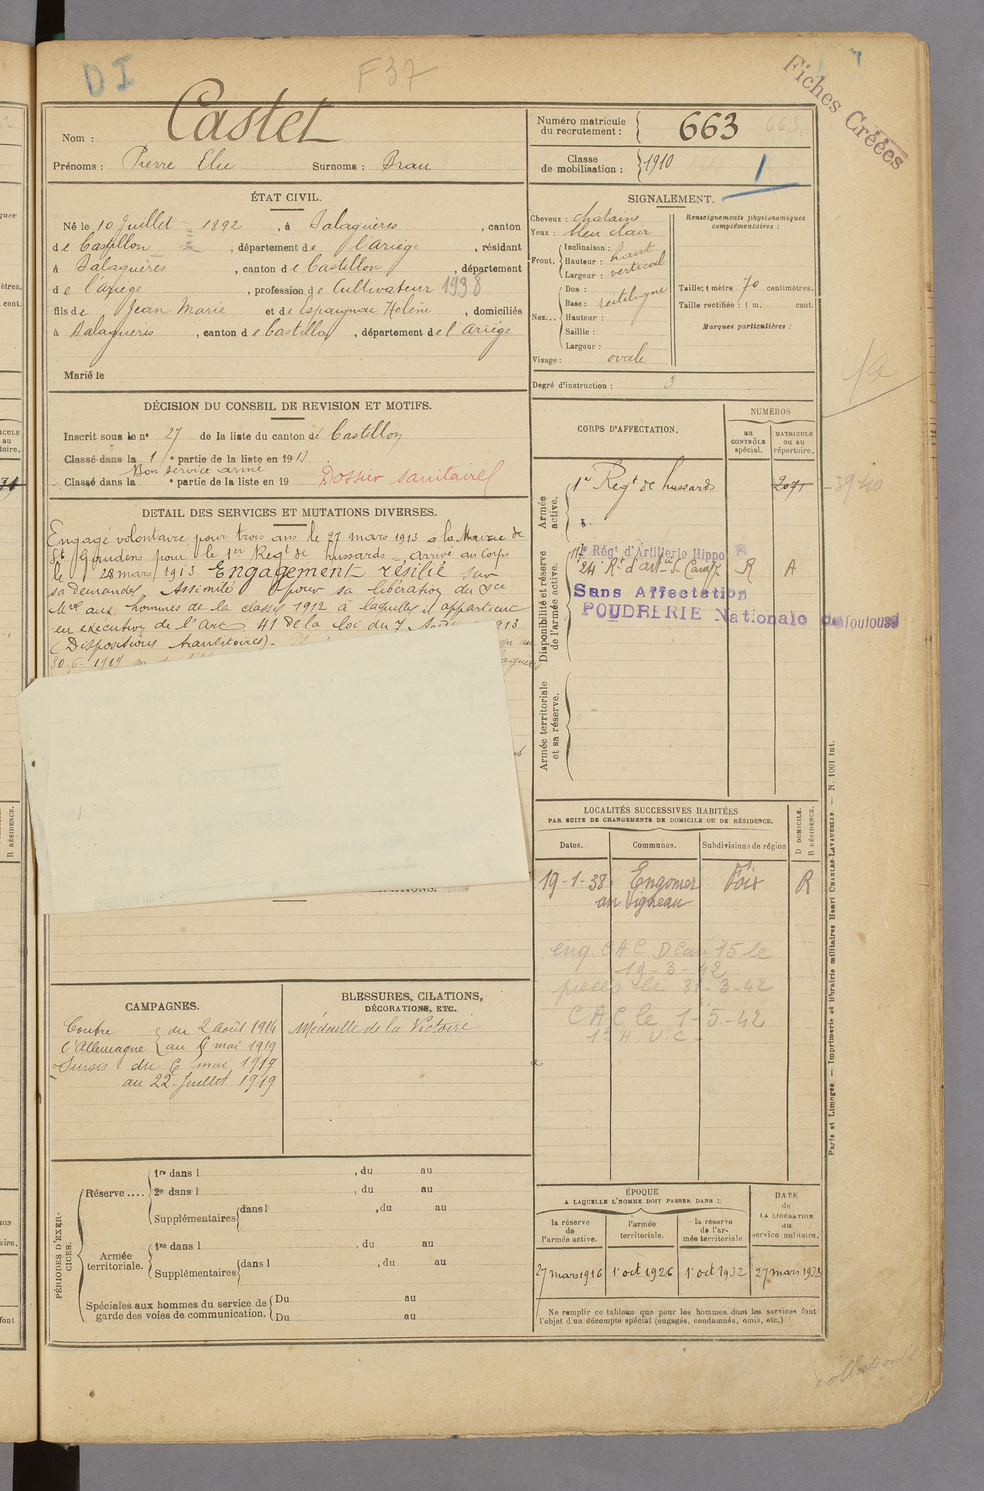 DI
F37
Fiches Créées
Nom : Castet
Prénoms : Pierre Elie Surnoms : Brau
Numéro matricule du recrutement : 663
Classe de mobilisation : 1910
1
ÉTAT CIVIL.
Né le 10 Juillet 1892, à Balaguères, canton
de Castillon, département de l'Ariège, résidant
à Balaguères, canton de Castillon, département
de l'Ariège, profession de Cultivateur 1998
fils de Jean Marie et de Espaignac Hélène, domiciliés
à Balaguères, canton de Castillon, département de l'Ariège
Marié le
SIGNALEMENT.
Cheveux : chatains
Yeux : bleu clair
Front. Inclinaison :
Hauteur : haut
Largeur : vertical
Nez... Dos :
Base : rectiligne
Hauteur :
Saillie :
Largeur :
Visage : ovale
Renseignements physionomiques complémentaires :
Taille : 1 mètre 70 centimètres.
Taille rectifiée : 1 m. cent.
Marques particulières :
Degré d'instruction : 3
DÉCISION DU CONSEIL DE REVISION ET MOTIFS.
Inscrit sous le n° 27 de la liste du canton de Castillon
Classé dans la 1re partie de la liste en 1913
Bon service armé
Classé dans la e partie de la liste en 19
Dossier sanitaire
DETAIL DES SERVICES ET MUTATIONS DIVERSES.
Engagé volontaire pour trois ans le 27 mars 1913 à la Mairie de
St Gaudens pour le 1er Regt de hussards arrivé au Corps
le 28 mars 1913. Engagement résilié sur
sa demande. Assimilé pour sa libération du Sce
Mre aux hommes de la classe 1912 à laquelle il appartient
en exécution de l'art 41 de la loi du 7 1913
(Dispositions transitoires).
CORPS D'AFFECTATION.
NUMÉROS
au CONTRÔLE spécial.
MATRICULE ou au répertoire.
Armée active.
1er Regt de hussards 2071
Disponibilité et réserve de l'armée active.
Régt d'Artillerie Hippo
24e Rt d'artie R A
Sans Affectation
POUDRERIE Nationale de Toulouse
Armée territoriale et sa réserve.
LOCALITÉS SUCCESSIVES HABITÉES
PAR SUITE DE CHANGEMENTS DE DOMICILE OU DE RÉSIDENCE.
Dates. Communes. Subdivisions de région D DOMICILE. R RÉSIDENCE.
19-1-38 Engomer Foix R
au Vigneau
eng. CAC 15 le
19-3-42
pièces le 31-3-42
CAC le 1-5-42
CAMPAGNES.
Contre l'Allemagne du 2 août 1914
au 5 mai 1919
Sursis du 6 mai 1919
au 22 Juillet 1919
BLESSURES, CITATIONS, DÉCORATIONS, ETC.
Médaille de la Victoire
PÉRIODES D'EXERCICES.
Réserve....
1re dans l , du au
2e dans l , du au
Supplémentaires dans l , du au
Armée territoriale.
1re dans l , du au
Supplémentaires dans l , du au
Spéciales aux hommes du service de garde des voies de communication.
Du au
Du au
ÉPOQUE
A LAQUELLE L'HOMME DOIT PASSER DANS :
la réserve de l'armée active.
l'armée territoriale.
la réserve de l'armée territoriale
DATE de LA LIBÉRATION du service militaire.
27 mars 1916 1er oct 1926 1er oct 1932 27 mars 1938
Ne remplir ce tableau que pour les hommes dont les services font
l'objet d'un décompte spécial (engagés, condamnés, omis, etc.)
Paris et Limoges. — Imprimerie et librairie militaires Henri CHARLES-LAVAUZELLE. — N. 1001 int.